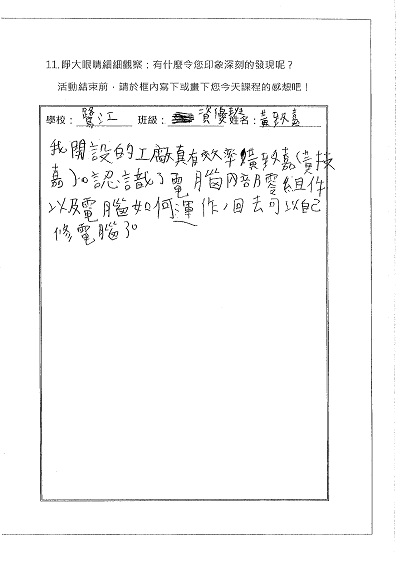 11. 睜大眼睛細細觀察：有什麼令您印象深刻的發現呢？
活動結束前，請於框內寫下或畫下您今天課程的感想吧！
學校：鷺江 班級：資優班 姓名：黃致嘉
我開設的工廠真有效率 黃致嘉(黃技
嘉)。認識了電腦內部零組件
以及電腦如何運作，回去可以自己
修電腦了。